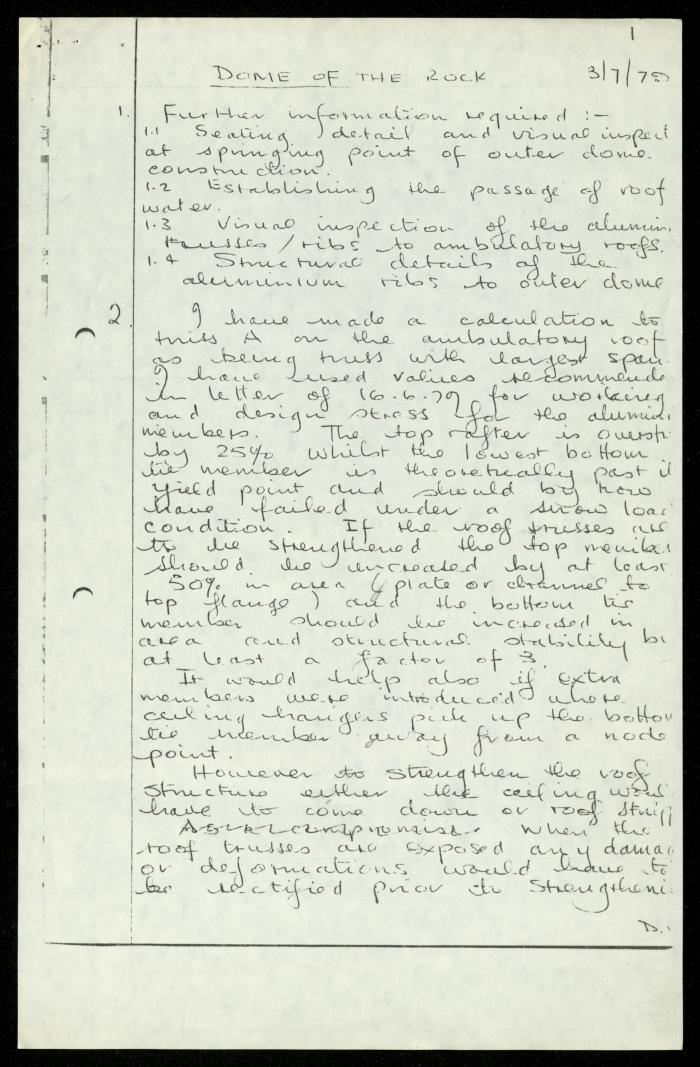 1
DOME OF THE ROCK 3/7/79
1. Further information required :-
1.1 Seating detail and visual inspect
at springing point of outer dome
construction.
1.2 Establishing the passage of roof
water.
1.3 Visual inspection of the alumin
trusses/ribs to ambulatory roofs.
1.4 Structural details of the
aluminium ribs to outer dome
2. I have made a calculation to
truss A on the ambulatory roof
as being truss with largest span.
I have used values recommende
in letter of 16.6.79 for working
and design stress for the alumin
members. The top rafter is overst
by 25% whilst the lowest bottom
tie member is theoretically past it
yield point and should by now
have failed under a snow load
condition. If the roof trusses are
to be strengthened the top member
should be increased by at least
50% in area (plate or channel to
top flange) and the bottom tie
member should be increased in
area and structural stability by
at least a factor of 3.
It would help also if extra
members were introduced where
ceiling hangers pick up the bottom
tie member away from a node
point.
However to strengthen the roof
structure either the ceiling woul
have to come down or roof stripp
When the
roof trusses are exposed any damag
or deformations would have to
be rectified prior to strengtheni